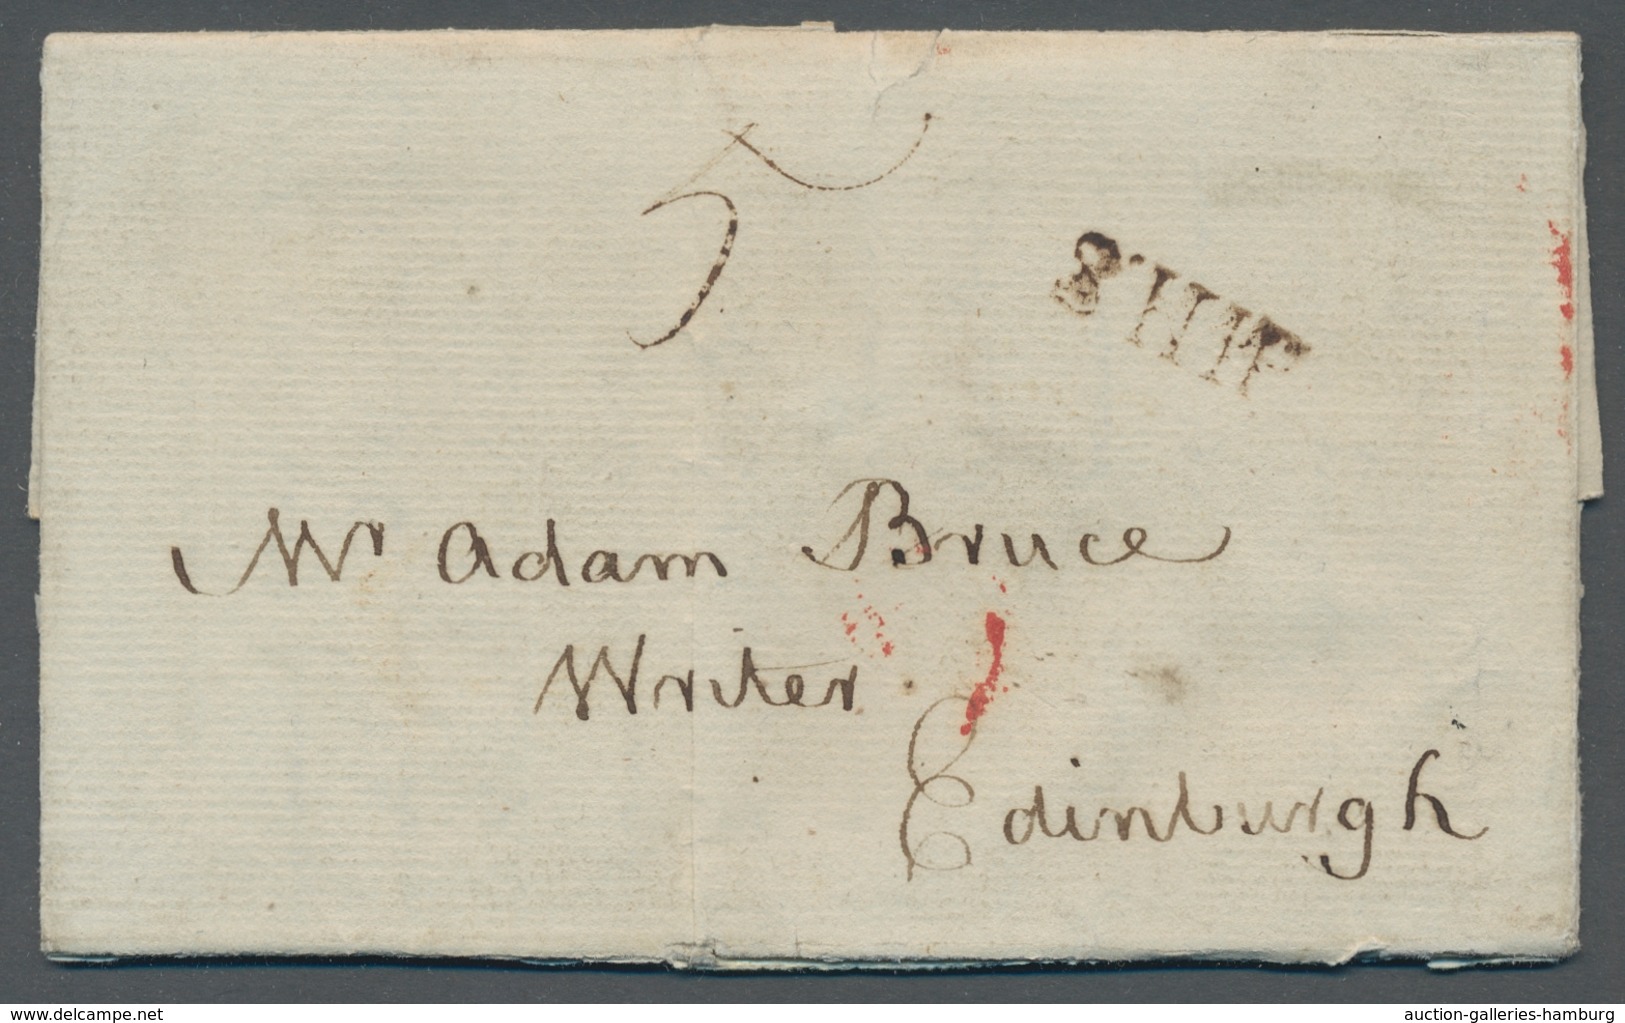 5
Mr Adam Bruce
Writer
Edinburgh
www.delcampe.net
auction-galleries-hamburg